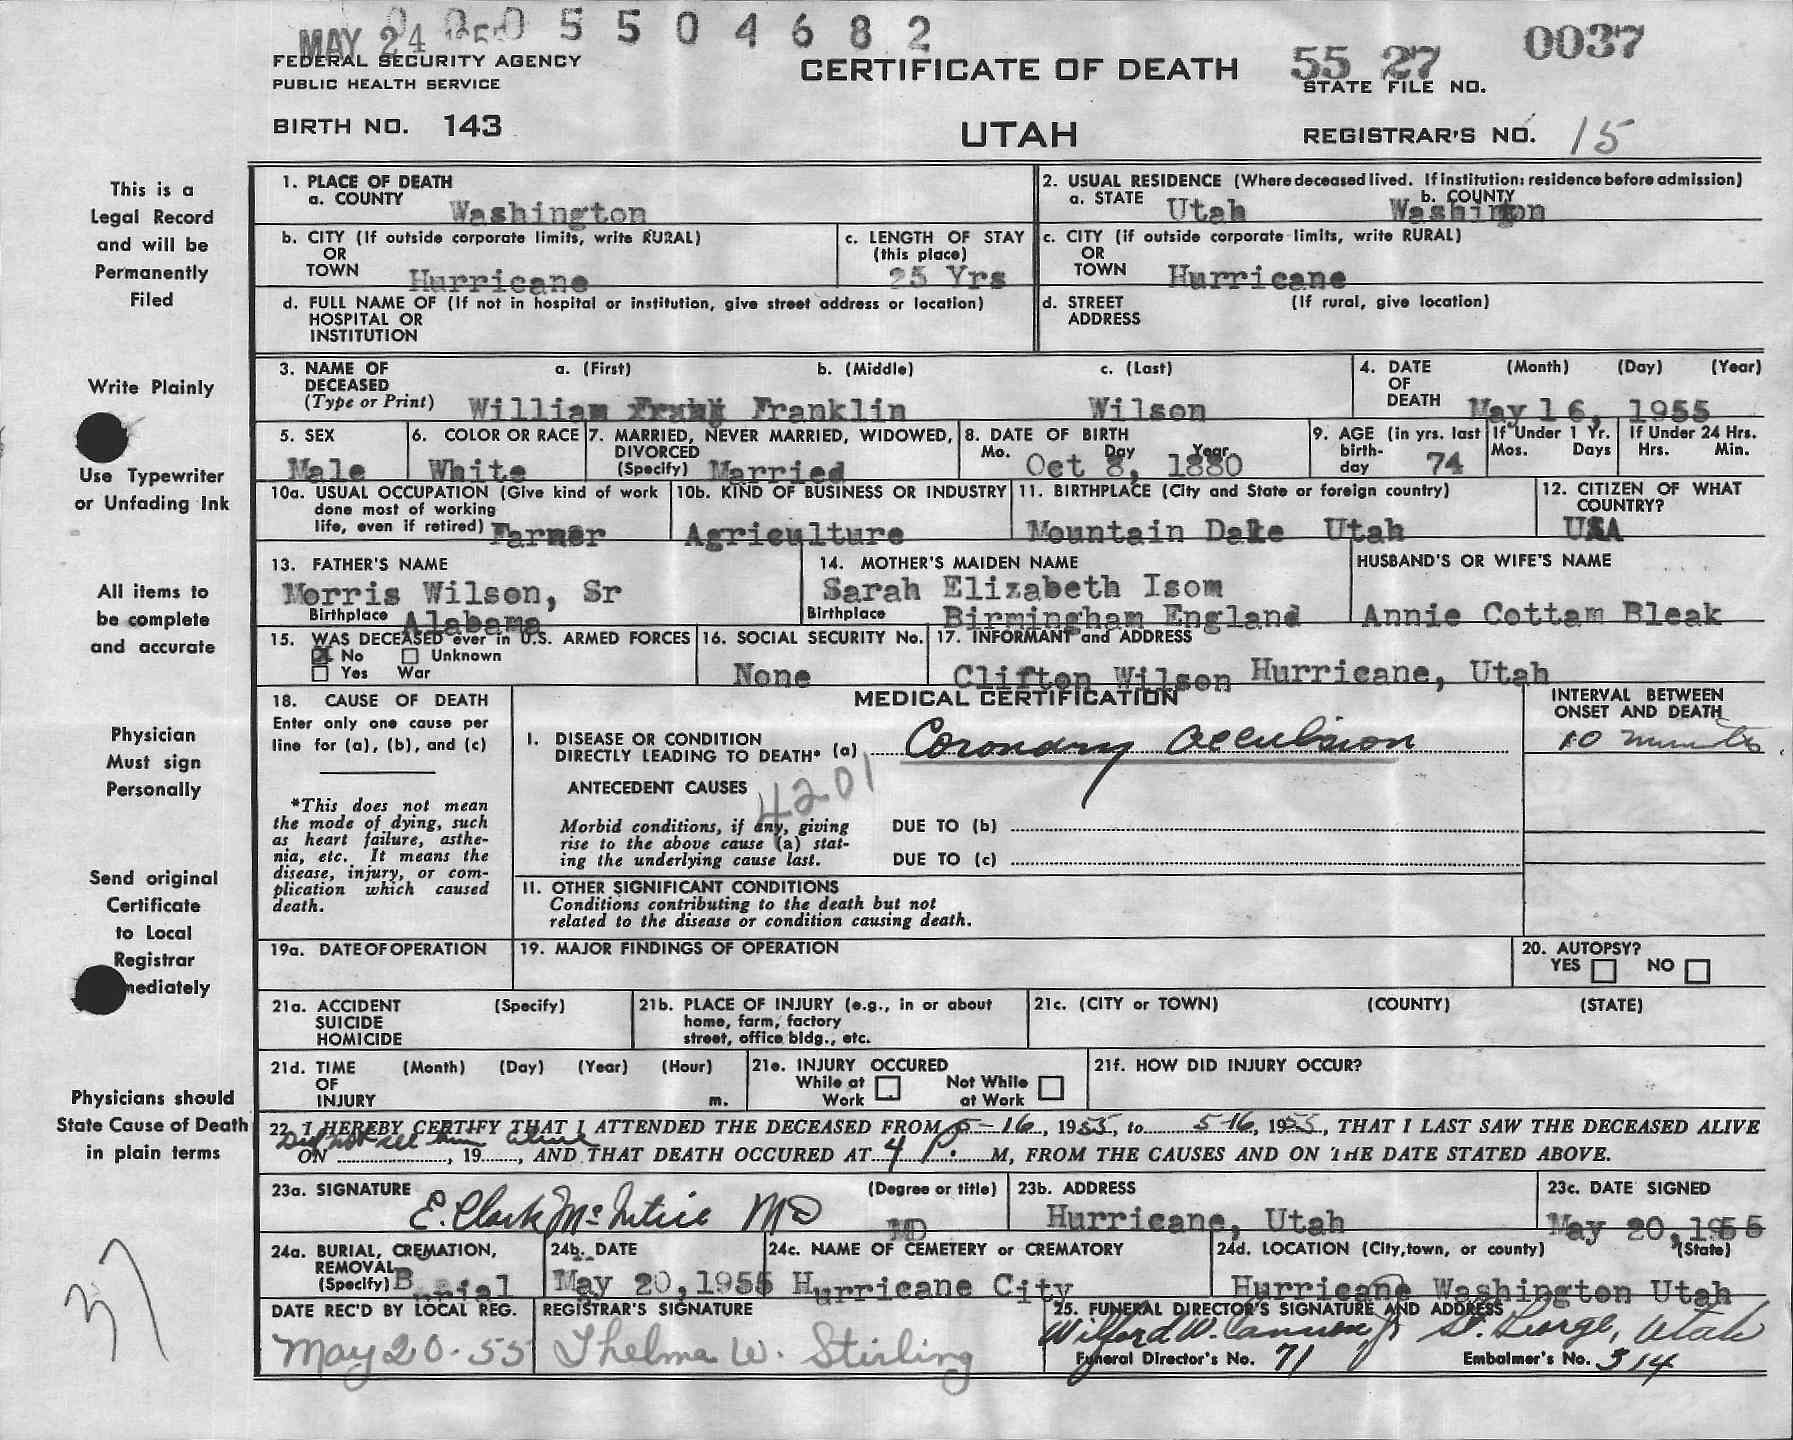 MAY 24 1955 0 5 5 0 4 6 8 2
FEDERAL SECURITY AGENCY
PUBLIC HEALTH SERVICE
CERTIFICATE OF DEATH
55 27 0037
STATE FILE NO.
BIRTH NO. 143
UTAH
REGISTRAR'S NO. 15
This is a
Legal Record
and will be
Permanently
Filed
Write Plainly
Use Typewriter
or Unfading Ink
All items to
be complete
and accurate
Physician
Must sign
Personally
Send original
Certificate
to Local
Registrar
mediately
Physicians should
State Cause of Death
in plain terms
37
1. PLACE OF DEATH
a. COUNTY Washington
2. USUAL RESIDENCE (Where deceased lived. If institution: residence before admission)
a. STATE Utah b. COUNTY Washington
b. CITY (If outside corporate limits, write RURAL)
OR
TOWN Hurricane
c. LENGTH OF STAY
(this place)
25 Yrs
c. CITY (if outside corporate limits, write RURAL)
OR
TOWN Hurricane
d. FULL NAME OF (If not in hospital or institution, give street address or location)
HOSPITAL OR
INSTITUTION
d. STREET (If rural, give location)
ADDRESS
3. NAME OF a. (First) b. (Middle) c. (Last)
DECEASED
(Type or Print) William Franklin Wilson
4. DATE (Month) (Day) (Year)
OF
DEATH May 16, 1955
5. SEX
Male
6. COLOR OR RACE
White
7. MARRIED, NEVER MARRIED, WIDOWED,
DIVORCED
(Specify) Married
8. DATE OF BIRTH
Mo. Day Year
Oct 8, 1880
9. AGE (in yrs. last
birth-
day 74
If Under 1 Yr.
Mos. Days
If Under 24 Hrs.
Hrs. Min.
10a. USUAL OCCUPATION (Give kind of work
done most of working
life, even if retired) Farmer
10b. KIND OF BUSINESS OR INDUSTRY
Agriculture
11. BIRTHPLACE (City and State or foreign country)
Mountain Dale Utah
12. CITIZEN OF WHAT
COUNTRY?
USA
13. FATHER'S NAME
Morris Wilson, Sr
Birthplace Alabama
14. MOTHER'S MAIDEN NAME
Sarah Elizabeth Isom
Birthplace Birmingham England
HUSBAND'S OR WIFE'S NAME
Annie Cottam Bleak
15. WAS DECEASED ever in U.S. ARMED FORCES
No Unknown
Yes War
16. SOCIAL SECURITY No.
None
17. INFORMANT and ADDRESS
Clifton Wilson Hurricane, Utah
18. CAUSE OF DEATH
Enter only one cause per
line for (a), (b), and (c)
*This does not mean
the mode of dying, such
as heart failure, asthe-
nia, etc. It means the
disease, injury, or com-
plication which caused
death.
MEDICAL CERTIFICATION
INTERVAL BETWEEN
ONSET AND DEATH
I. DISEASE OR CONDITION
DIRECTLY LEADING TO DEATH* (a) Coronary occulusion
10 minutes
ANTECEDENT CAUSES
4201
Morbid conditions, if any, giving
rise to the above cause (a) stat-
ing the underlying cause last.
DUE TO (b)
DUE TO (c)
II. OTHER SIGNIFICANT CONDITIONS
Conditions contributing to the death but not
related to the disease or condition causing death.
19a. DATE OF OPERATION
19. MAJOR FINDINGS OF OPERATION
20. AUTOPSY?
YES NO
21a. ACCIDENT (Specify)
SUICIDE
HOMICIDE
21b. PLACE OF INJURY (e.g., in or about
home, farm, factory
street, office bldg., etc.
21c. (CITY or TOWN) (COUNTY) (STATE)
21d. TIME (Month) (Day) (Year) (Hour)
OF
INJURY m.
21e. INJURY OCCURED
While at Not While
Work at Work
21f. HOW DID INJURY OCCUR?
22. I HEREBY CERTIFY THAT I ATTENDED THE DECEASED FROM 5-16, 1955, to 5-16, 1955, THAT I LAST SAW THE DECEASED ALIVE
Did not see him alive
ON , 19 , AND THAT DEATH OCCURED AT 4 P. M, FROM THE CAUSES AND ON THE DATE STATED ABOVE.
23a. SIGNATURE (Degree or title)
E. Clark McIntire MD MD
23b. ADDRESS
Hurricane, Utah
23c. DATE SIGNED
May 20, 1955
24a. BURIAL, CREMATION,
REMOVAL
(Specify) Burial
24b. DATE
May 20, 1955
24c. NAME OF CEMETERY or CREMATORY
Hurricane City
24d. LOCATION (City, town, or county) (State)
Hurricane Washington Utah
DATE REC'D BY LOCAL REG.
May 20-55
REGISTRAR'S SIGNATURE
Thelma W. Stirling
25. FUNERAL DIRECTOR'S SIGNATURE AND ADDRESS
Wilford W. Cannon Jr St. George, Utah
Funeral Director's No. 71 Embalmer's No. 314